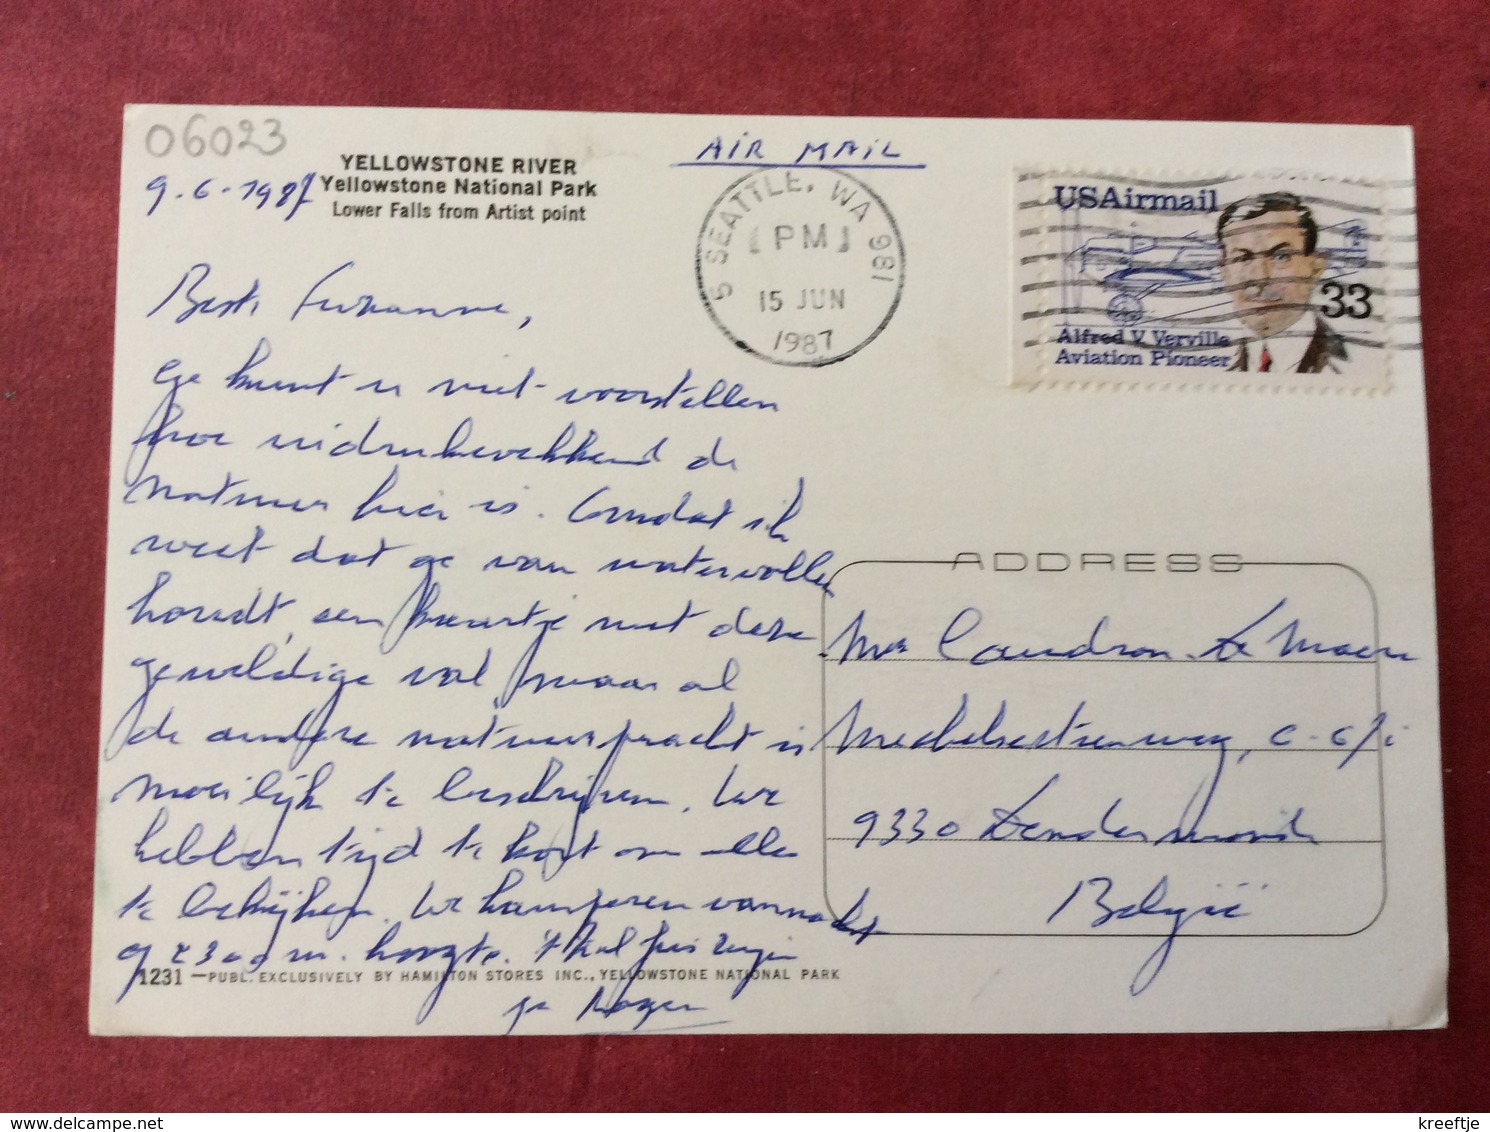 06023
YELLOWSTONE RIVER
Yellowstone National Park
Lower Falls from Artist point
9.6.1987
AIR MAIL
5 SEATTLE, WA 981
PM
15 JUN
1987
USAirmail
33
Alfred V. Verville
Aviation Pioneer
Beste Suzanne,
Ge kunt u niet voorstellen
hoe indrukwekkend de
natuur hier is. Omdat ik
weet dat ge van watervallen
houdt, een kaartje met deze
geweldige val, maar al
de andere natuurpracht is
moeilijk te beschrijven. We
hebben tijd te kort om alles
te bekijken. We kamperen vannacht
op 2300 m. hoogte. 't Zal fris zijn
je Roger
1231 — PUBL. EXCLUSIVELY BY HAMILTON STORES INC., YELLOWSTONE NATIONAL PARK
ADDRESS
Mevr Caudron-De Maere
Mechelsesteenweg,
9330 Dendermonde
België
kreeftje